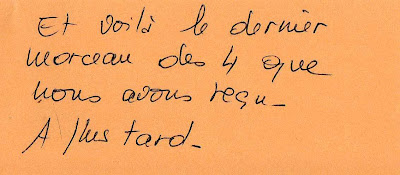 Et voilà le dernier
morceau des 4 que
nous avons reçu_
A plus tard_